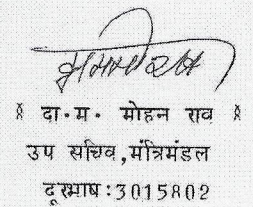 दा·म· मोहन राव
उप सचिव,मंत्रिमंडल
दूरभाष:3015802